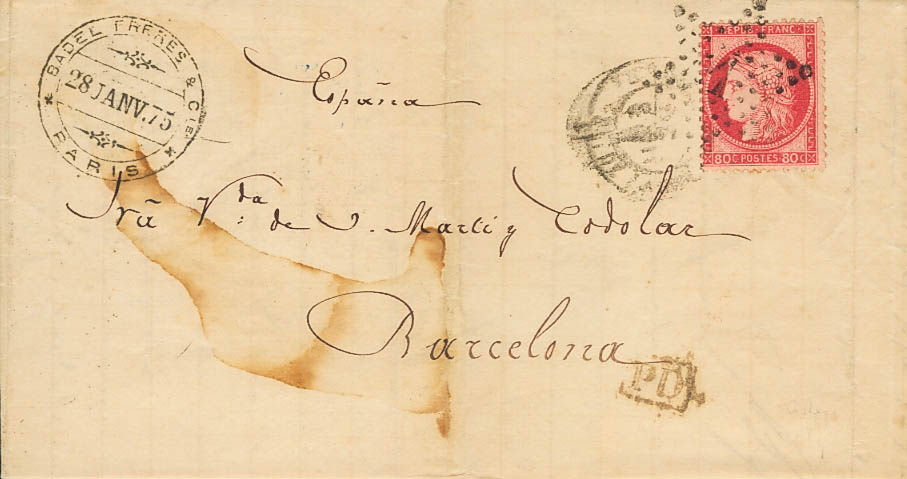 BADEL FRERES & CIE
28 JANV. 75
PARIS
REPUB. FRANC.
80C POSTES 80C
1
España
Srã Vda de J. Martí y Codolar
Barcelona
PD